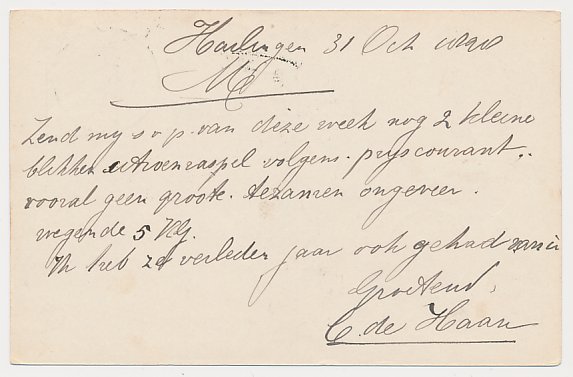 Harlingen 31 Oct 1890
M
Zend my s v p. van deze week nog 2 kleine
blikken citroenraspel volgens. pryscourant..
vooral geen groote. tezamen ongeveer.
wegende 5 Klg.
Ik heb ze verleden jaar ook gehad
Groetend,
C. de Haan